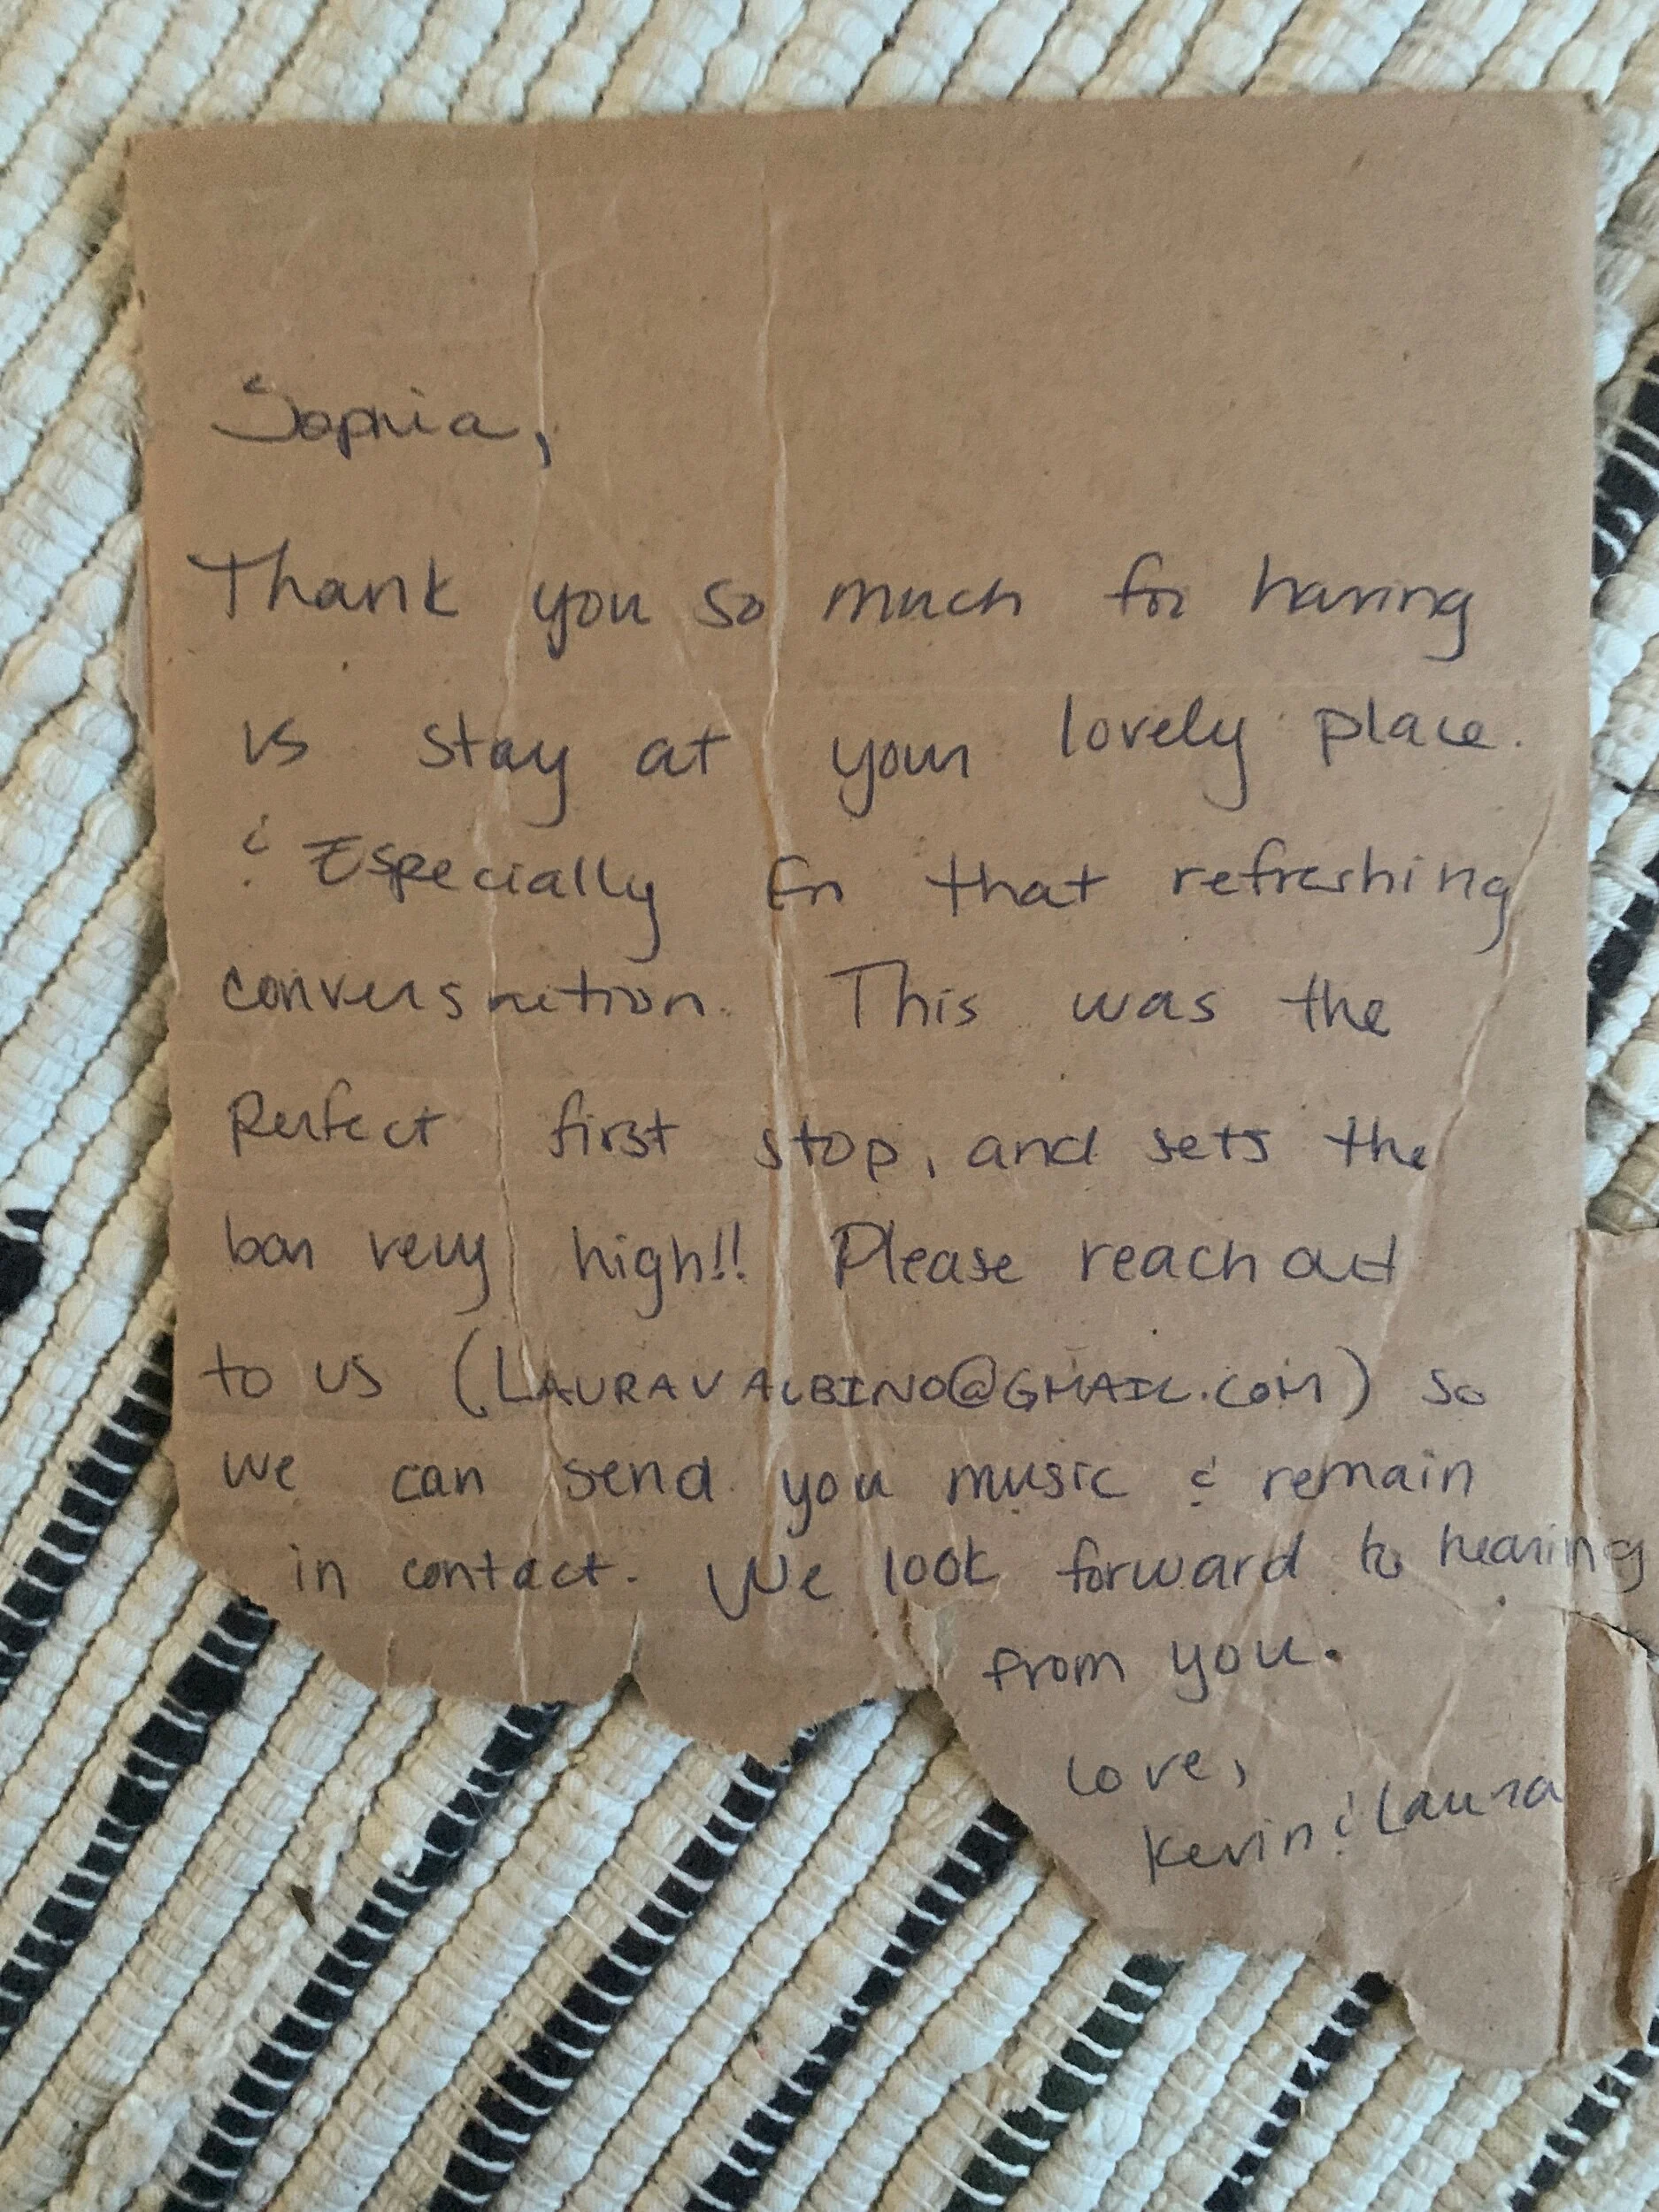 Sophia,
Thank you so much for having
us stay at your lovely place.
& Especially for that refreshing
conversation. This was the
Perfect first stop, and sets the
bar very high!! Please reach out
to us (LAURAVALBINO@GMAIL.COM) so
we can send you music & remain
in contact. We look forward to hearing
from you.
Love,
Kevin & Laura